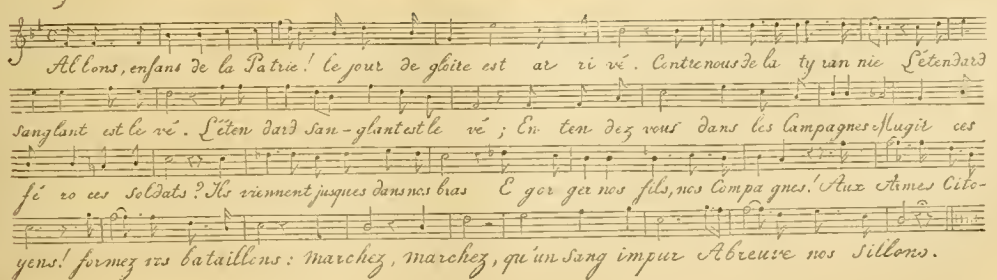 Allons, enfans de la Patrie! le jour de gloire est ar ri vé. Contre nous de la ty ran nie L'étendard
sanglant est le vé. L'éten dard san-glant est le vé; En ten dez vous dans les Campagnes Mugir ces
fé ro ces soldats? Ils viennent jusques dans nos bras E gor ger nos fils, nos Compa gnes! Aux Armes Cito-
yens! formez vos bataillons: marchez, marchez, qu'un sang impur Abreuve nos sillons.